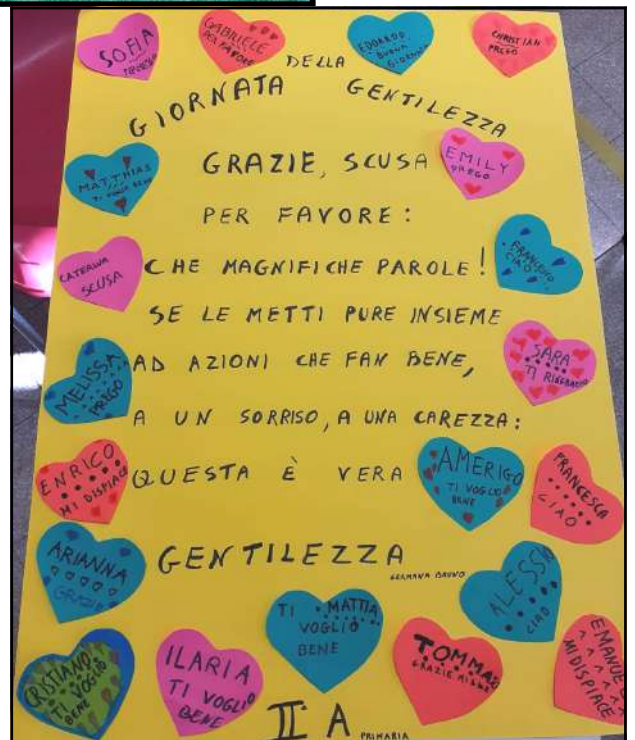 SOFIA
GABRIELE
PER FAVORE
EDOARDO
BUONA
GIORNATA
CHRISTIAN
PREGO
GIORNATA DELLA GENTILEZZA
MATTHIAS
TI VOGLIO BENE
GRAZIE, SCUSA
EMILY
PREGO
PER FAVORE:
CATERINA
SCUSA
CHE MAGNIFICHE PAROLE!
FRANCESCO
CIAO
SE LE METTI PURE INSIEME
MELISSA
PREGO
AD AZIONI CHE FAN BENE,
SARA
TI RINGRAZIO
A UN SORRISO, A UNA CAREZZA:
ENRICO
MI DISPIACE
QUESTA È VERA
AMERIGO
TI VOGLIO
BENE
FRANCESCA
CIAO
ARIANNA
GRAZIE
GENTILEZZA
GERMANA BRUNO
ALESSIO
CIAO
TI MATTIA
VOGLIO
BENE
CRISTIANO
TI VOGLIO
BENE
ILARIA
TI VOGLIO
BENE
TOMMASO
GRAZIE MILLE
EMANUELE
MI DISPIACE
II A PRIMARIA